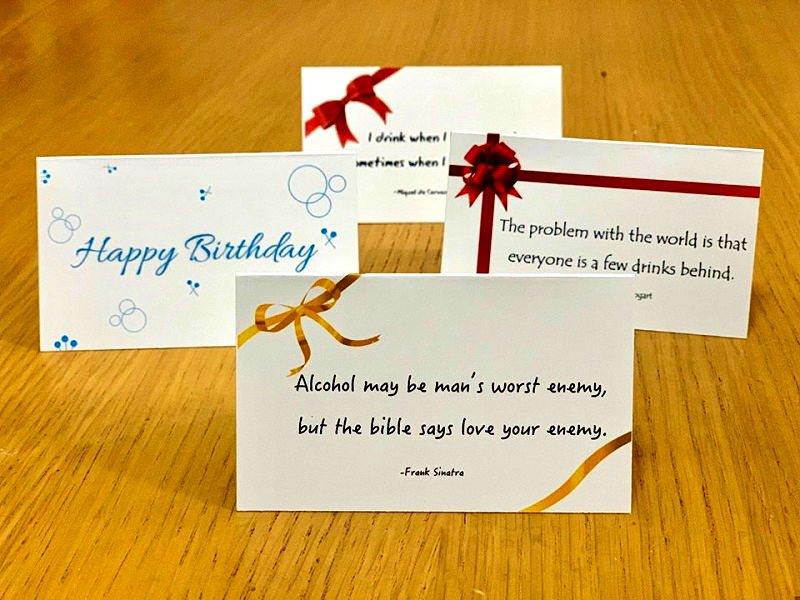 I drink when I
when I
Happy Birthday
The problem with the world is that
everyone is a few drinks behind.
Alcohol may be man's worst enemy,
but the bible says love your enemy.
-Frank Sinatra